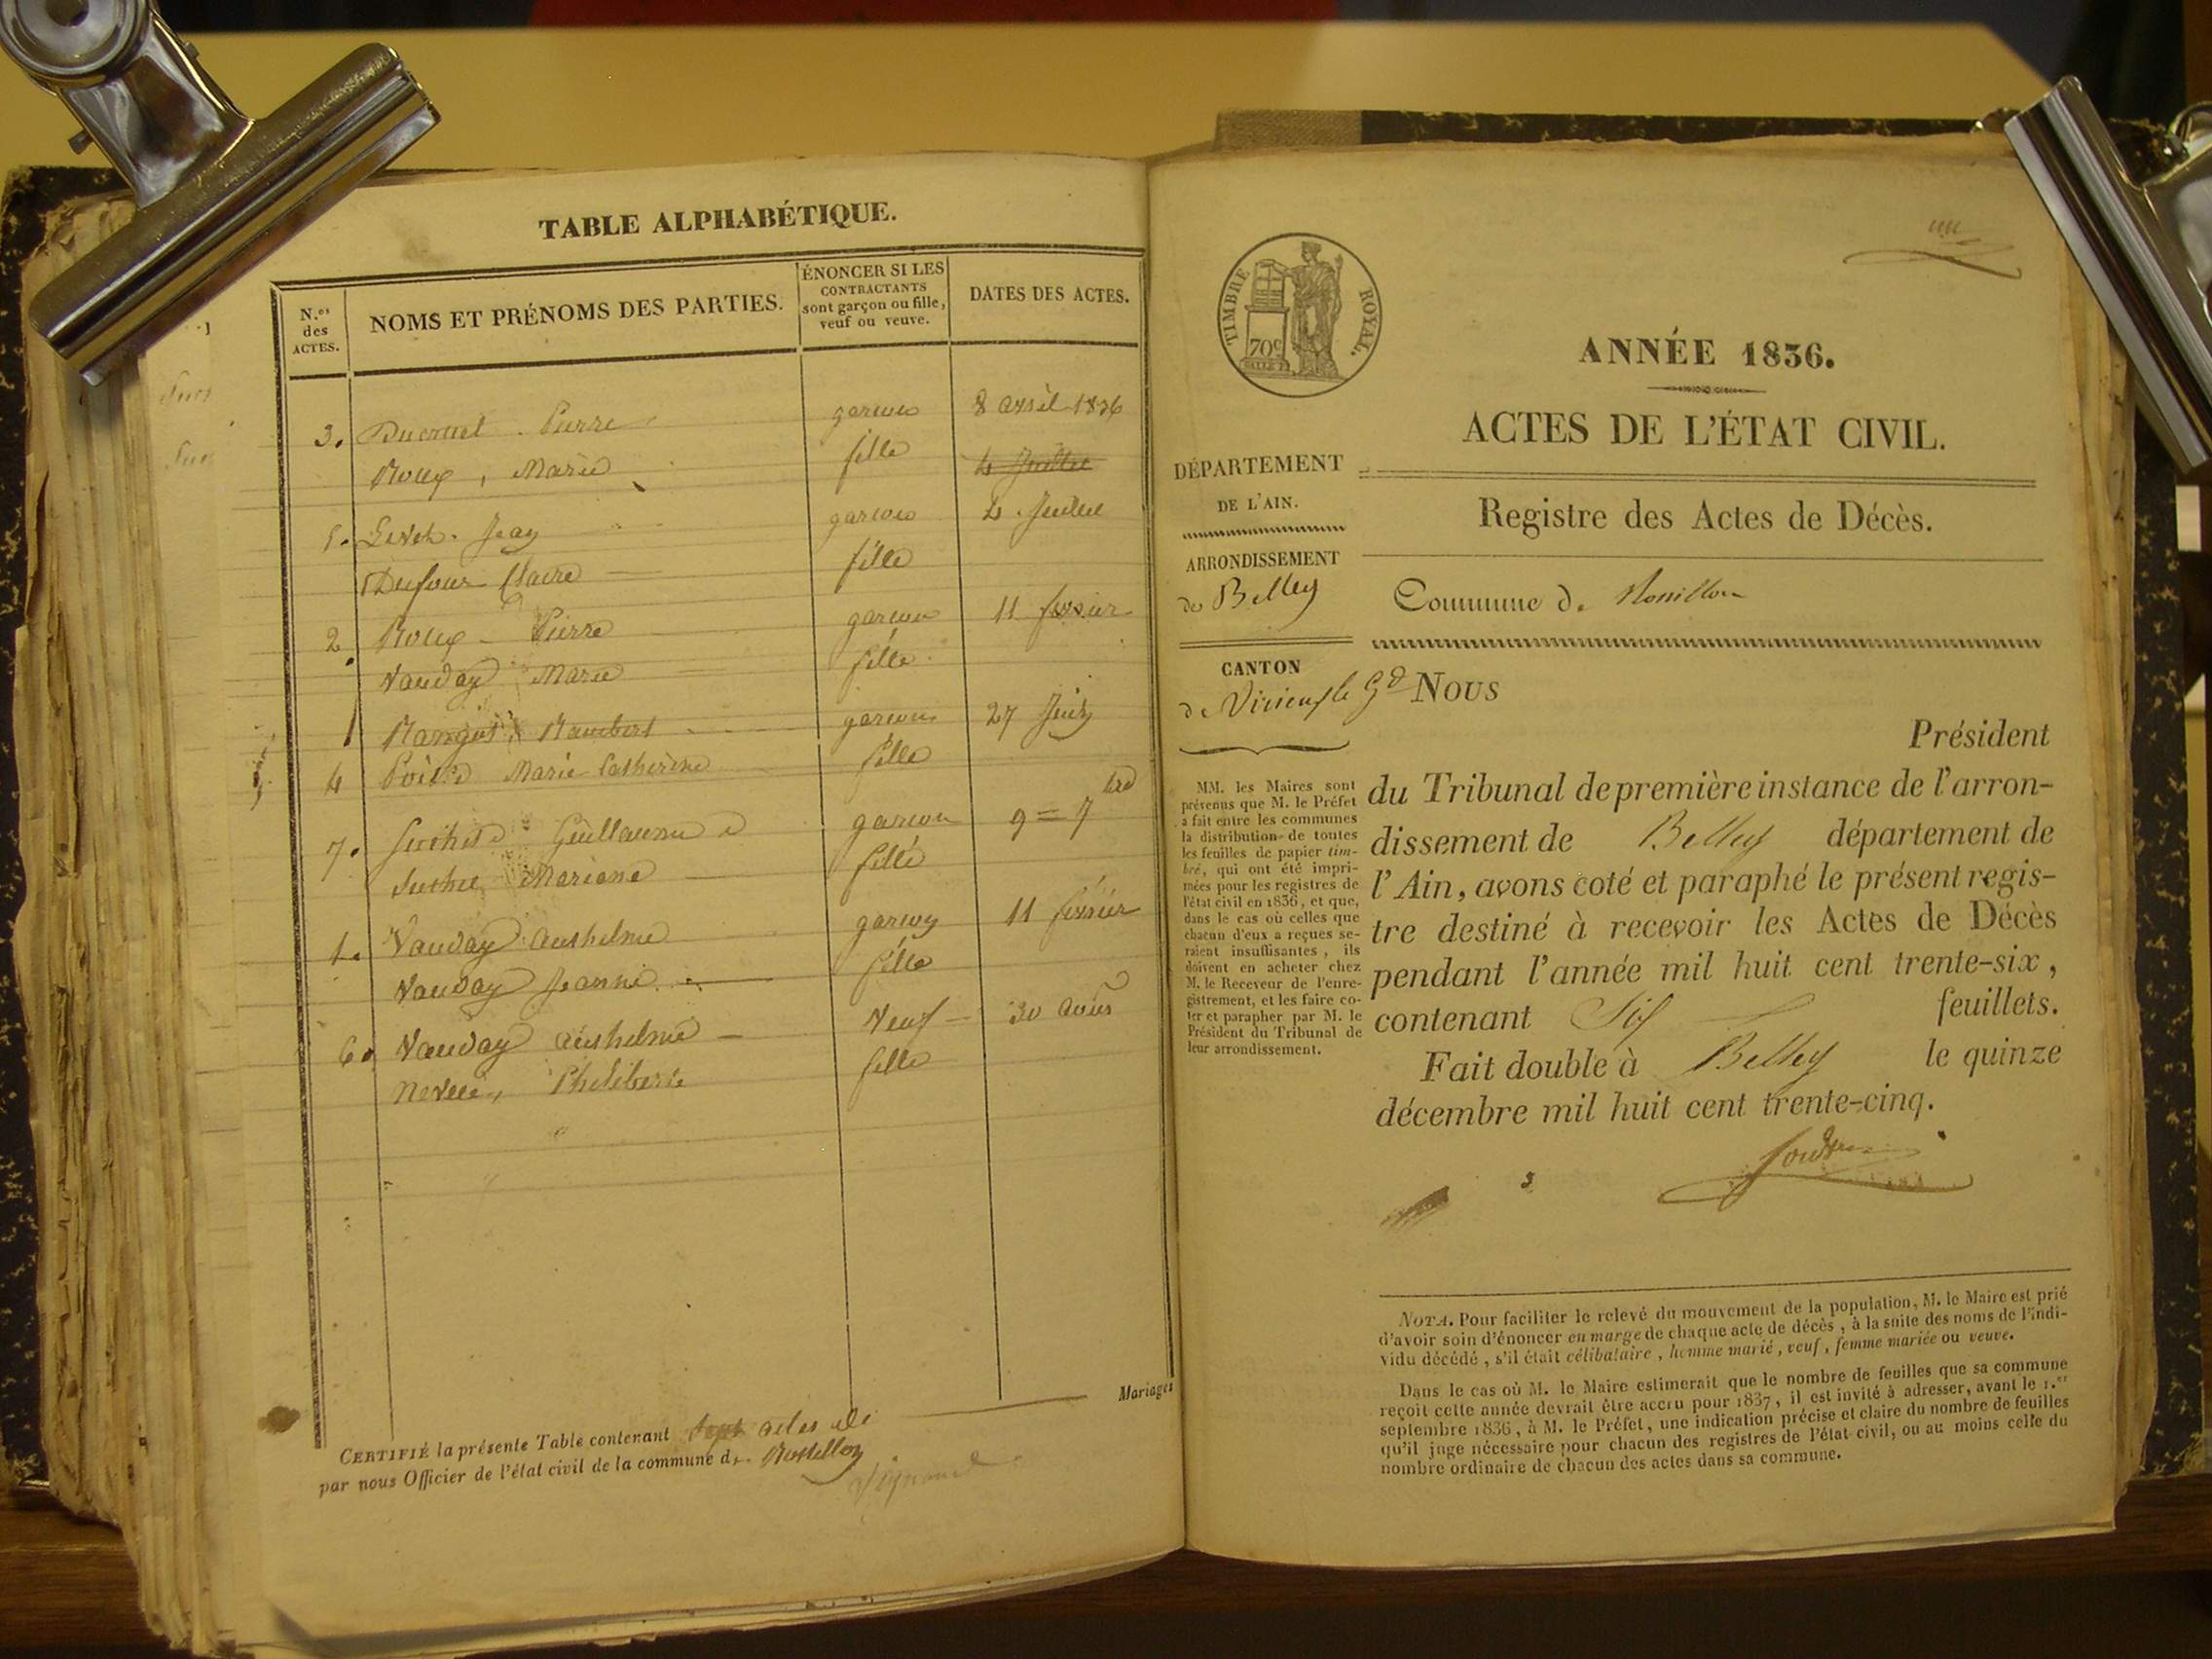 TABLE ALPHABÉTIQUE.
N.os des ACTES.
NOMS ET PRÉNOMS DES PARTIES.
ÉNONCER SI LES CONTRACTANTS sont garçon ou fille, veuf ou veuve.
DATES DES ACTES.
3. Pierre garcon 8 avril 1836
Roux, Marie fille 4 Juillet
5. Jean garcon 4 Juillet
Dufour Claire fille
2. Roux Pierre garcon 11 fevrier
Vauday Marie fille
Rambert garcon 27 Juin
4 Marie Catherine fille
7. Guillaume garcon 9 = 7bre
Mariane fille
1. Vauday anthelme garcon 11 fevrier
Vauday Jeanne fille
6. Vauday anthelme Veuf 30 aout
Philiberte fille
Mariages
CERTIFIÉ la présente Table contenant Sept actes de
par nous Officier de l'état civil de la commune de Rossillon
TIMBRE ROYAL.
70c
ANNÉE 1836.
ACTES DE L'ÉTAT CIVIL.
DÉPARTEMENT
DE L'AIN.
Registre des Actes de Décès.
ARRONDISSEMENT
de Belley
Commune de Rossillon
CANTON
de Virieu le Gd
NOUS
Président
du Tribunal de première instance de l'arron-
dissement de Belley département de
l'Ain, avons coté et paraphé le présent regis-
tre destiné à recevoir les Actes de Décès
pendant l'année mil huit cent trente-six,
contenant Six feuillets.
Fait double à Belley le quinze
décembre mil huit cent trente-cinq.
MM. les Maires sont
prévenus que M. le Préfet
a fait entre les communes
la distribution de toutes
les feuilles de papier tim-
bré, qui ont été impri-
mées pour les registres de
l'état civil en 1836, et que,
dans le cas où celles que
chacun d'eux a reçues se-
raient insuffisantes, ils
doivent en acheter chez
M. le Receveur de l'enre-
gistrement, et les faire co-
ter et parapher par M. le
Président du Tribunal de
leur arrondissement.
NOTA. Pour faciliter le relevé du mouvement de la population, M. le Maire est prié
d'avoir soin d'énoncer en marge de chaque acte de décès, à la suite des noms de l'indi-
vidu décédé, s'il était célibataire, homme marié, veuf, femme mariée ou veuve.
Dans le cas où M. le Maire estimerait que le nombre de feuilles que sa commune
reçoit cette année devrait être accru pour 1837, il est invité à adresser, avant le 1.er
septembre 1836, à M. le Préfet, une indication précise et claire du nombre de feuilles
qu'il juge nécessaire pour chacun des registres de l'état civil, ou au moins celle du
nombre ordinaire de chacun des actes dans sa commune.